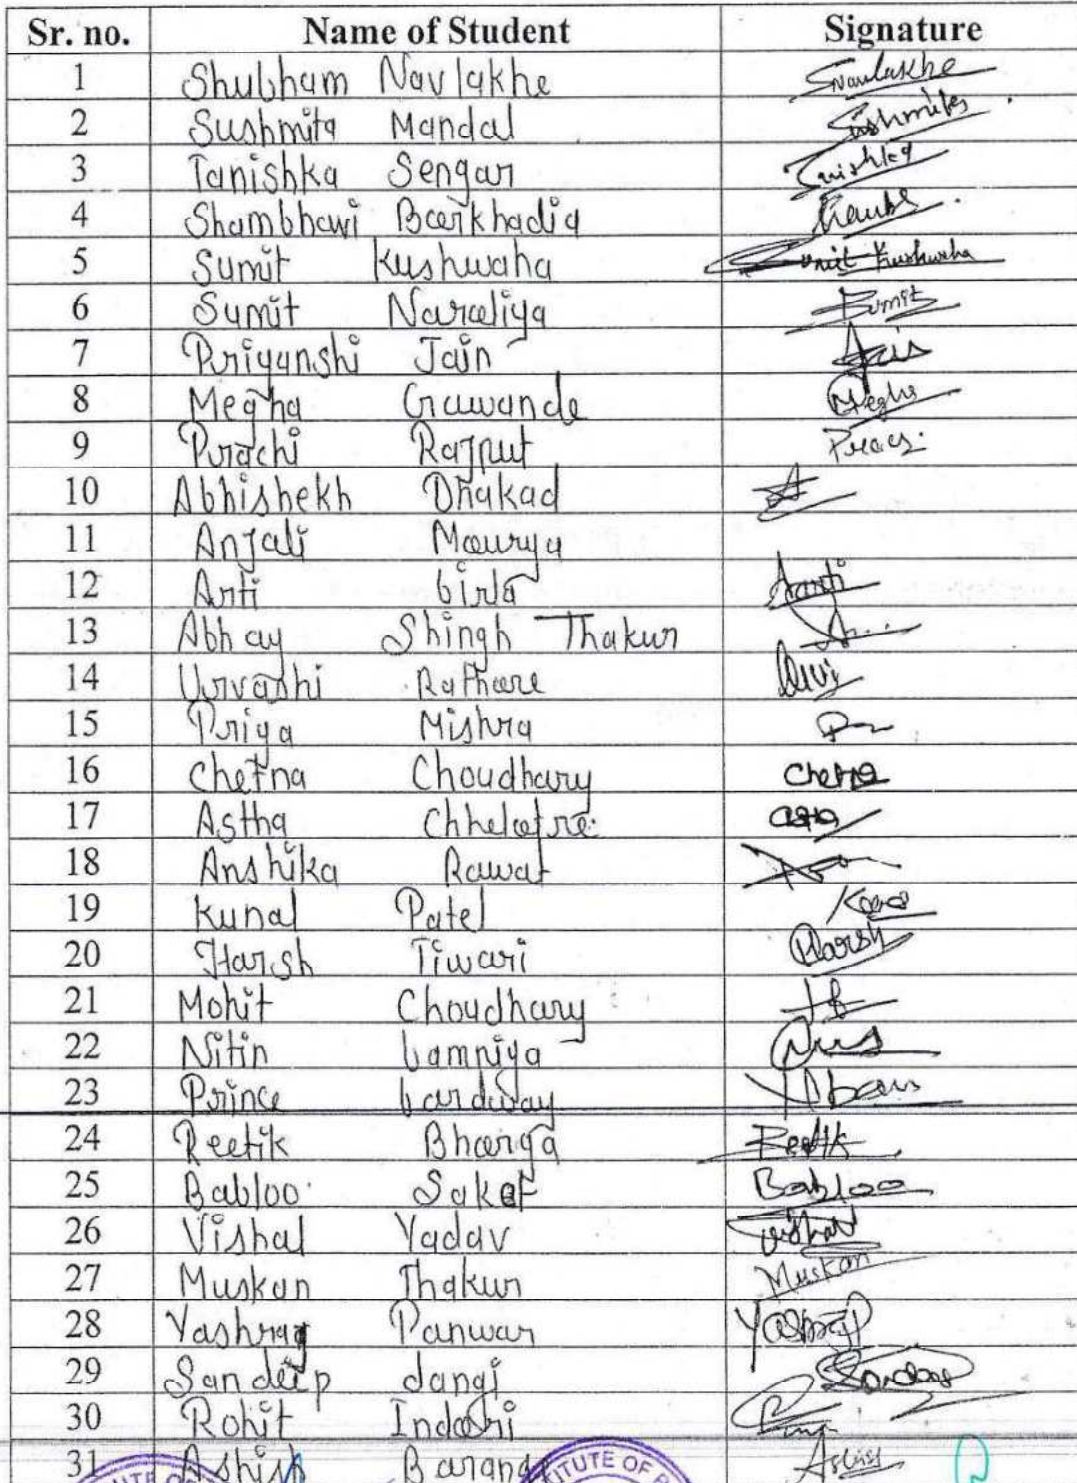 Sr. no. Name of Student Signature
1 Shubham Navlakhe Snavlakhe
2 Sushmita Mandal Sushmita
3 Tanishka Sengar Tanishka
4 Shambhawi Barkhadia
5 Sumit Kushwaha Sumit Kushwaha
6 Sumit Naraliya Sumit
7 Priyanshi Jain Jain
8 Megha Gawande Megha
9 Prachi Rajput
10 Abhishekh Dhakad
11 Anjali Maurya
12 Arti birla Aarti
13 Abhay Shingh Thakur
14 Urvashi Rathore
15 Priya Mishra
16 Chetna Choudhary Chetna
17 Astha Chhelotre
18 Anshika Rawat
19 Kunal Patel
20 Harsh Tiwari Harsh
21 Mohit Choudhary
22 Nitin bamniya
23 Prince bardway
24 Reetik Bharga Reetik
25 Babloo Saket Babloo
26 Vishal Yadav Vishal
27 Muskan Thakur Muskan
28 Yashraj Panwar Yashraj
29 Sandeep dangi
30 Rohit Indori
31 Ashish